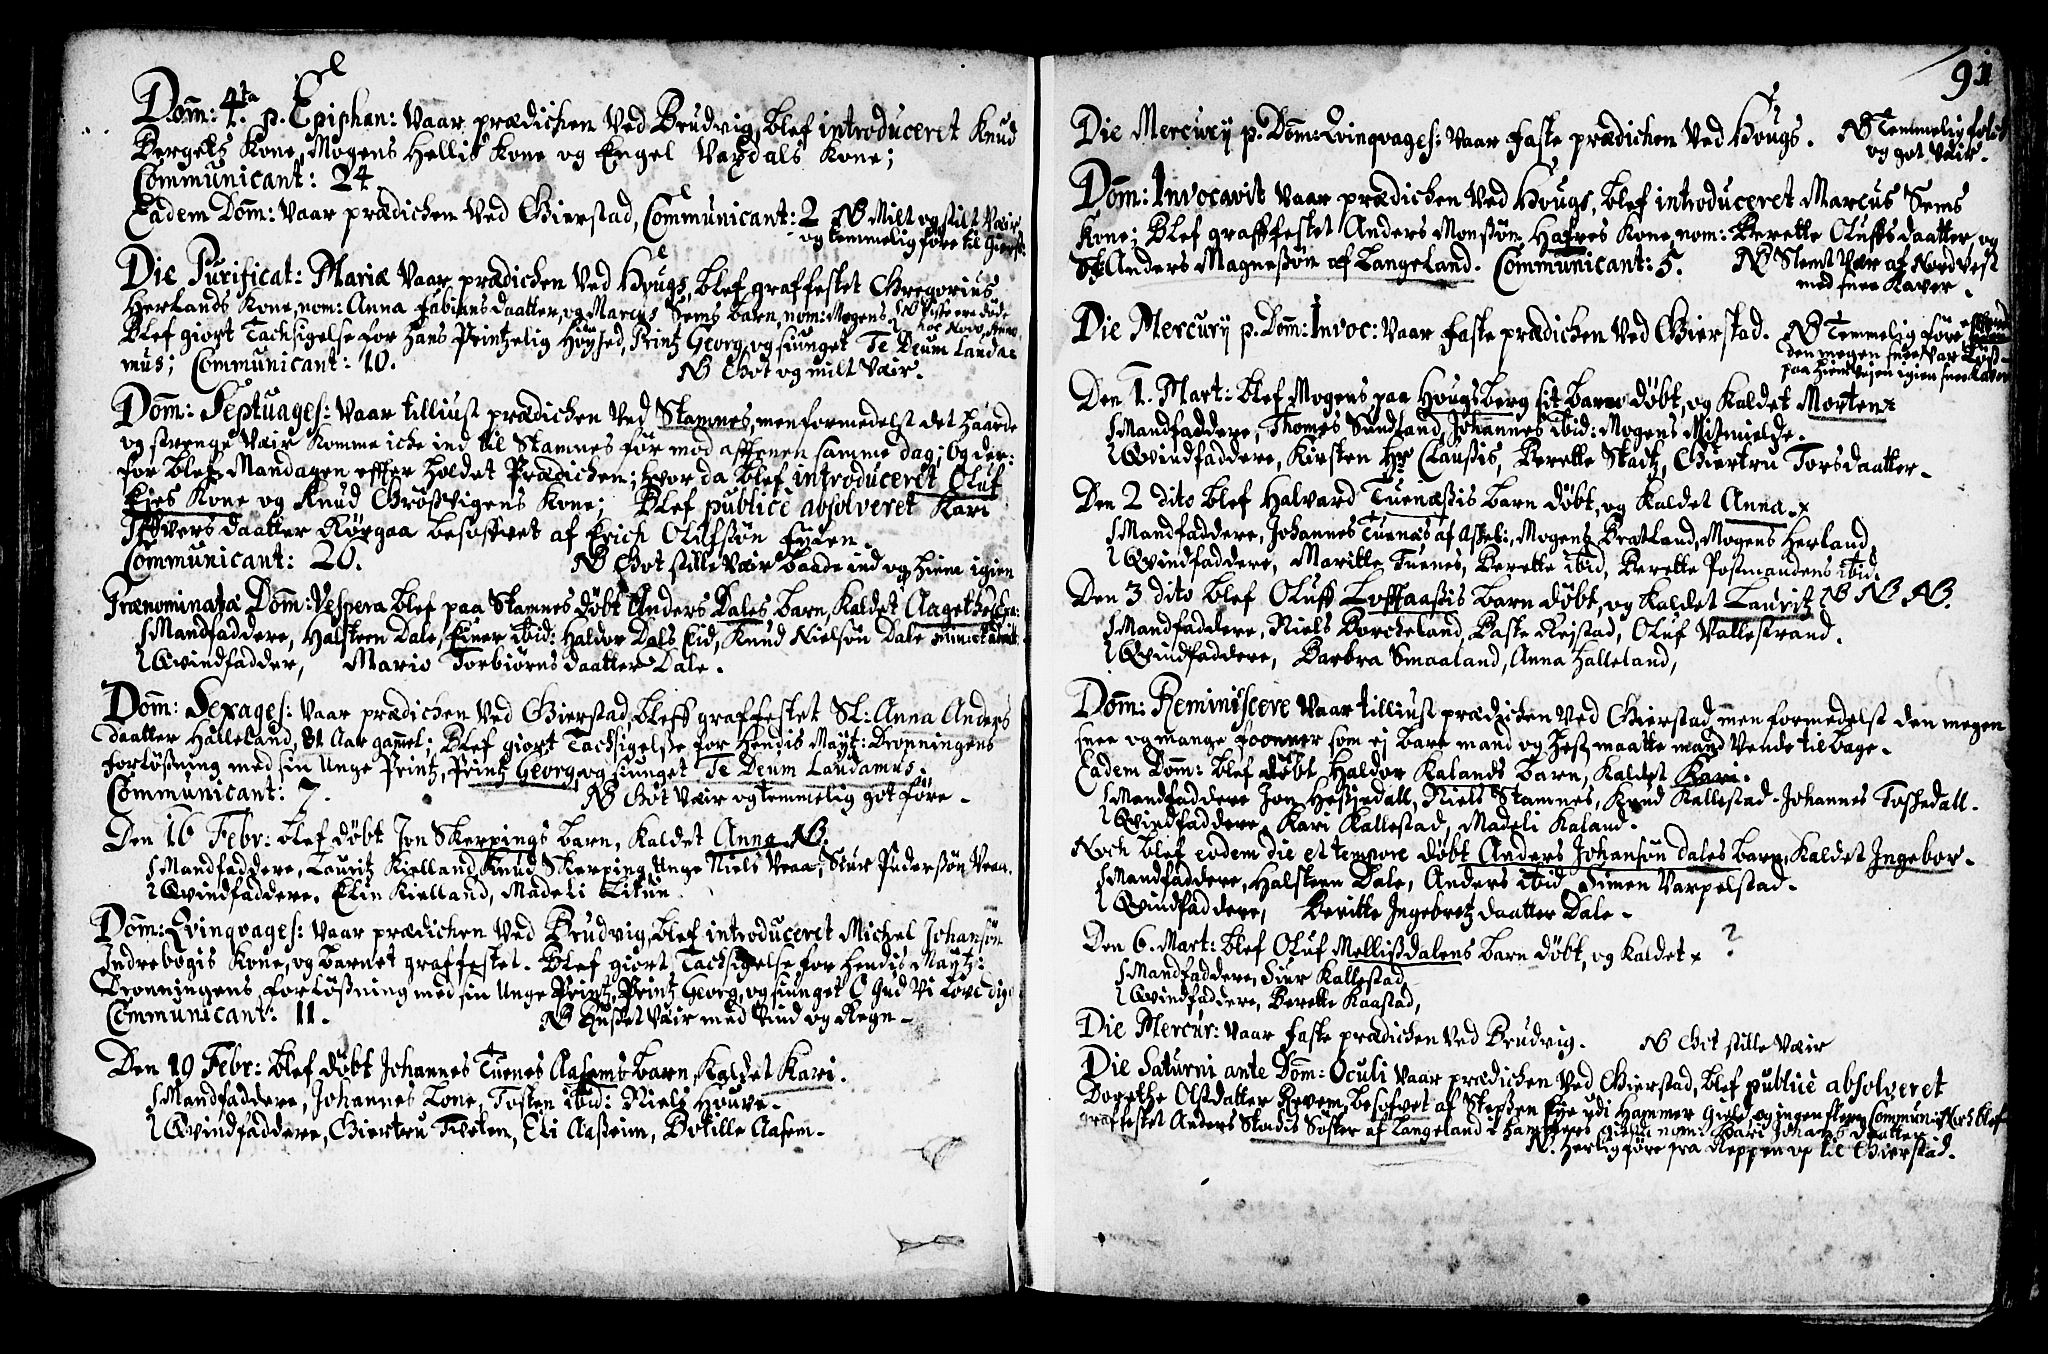 Dom: 4ta p. Epiphan: Vaar prædichen Ved Brudvig, blef introduceret Knud
Kone, Mogens Hellis Kone og Engel Vaxdals Kone;
Communicant: 24.
Eadem Dom: Vaar prædichen Ved Gierstad, Communicant: 2 NB Milt og stilt Vær
og temmelig före til Gierst:
Die Purificat: Mariæ Vaar prædichen Ved Hougs, blef graffestet Gregorius
Herlands Kone, nom: Anna Fabians daatter, og Marcus Sems barn, nom: Mogens
Blef giort Tachsigelse for Hans Printzelig Höyhed, Printz Georg, og siunget Te Deum Lauda
mus; Communicant: 10. NB Got og milt Vær.
Dom: Septuages: Vaar tilliust prædichen Ved Stamnes, men formedelst det haarde
og strenge Vær Komme iche ind til Stamnes för mod afftenen samme dag; Og der:
for blef Mandagen effter holdet Prædichen; hvor da blef introduceret Oluf
Eies Kone og Knud Kone; Blef publicè absolveret Kari
daatter besoffvet af Erich Olufsön
Communicant: 20. NB Got stille Vær baade ind og hiem igien
Prænominata Dom: Vespera blef paa Stamnes döbt Anders Dales barn, Kaldet Aagethe
Mandfaddere, Halsteen Dale, Einer ibid: Haldor Dals Eid, Knud Nielsön Dale
Qvindfadder, Mario Torbiörns daatter Dale.
Dom: Sexages: Vaar prædichen Ved Gierstad, bleff graffestet Sl: Anna Anders
daatter Halleland, 81 Aar gammel; Blef giort Tachsigelse for Hendis Mayt: Dronningens
forlösning med sin Unge Printz, Printz Georg, og siunget Te Deum Laudamus.
Communicant: 7. NB Got Vær og temmelig got före.
Den 16 Febr: blef döbt Jon Skerpings barn, Kaldet Anna. NB.
Mandfaddere, Lauritz Kielland, Knud Skerping, Unge Niels Veaa, Siur Pedersön Veaa.
Qvindfaddere, Elin Kielland, Madeli
Dom: Qvinqvages: Vaar prædichen Ved Brudvig, blef introduceret Michel Johansön
Indrebögis Kone, og barnet graffestet. Blef giort Tachsigelse for Hendis Mayt:
Dronningens forlösning med sin Unge Printz, Printz Georg, og siunget O Gud Vi love dig
Communicant: 11. NB Vær med Vind og Regn.
Den 19 Febr: blef döbt Johannes Tuenes Aasems barn, Kaldet Kari.
Mandfaddere, Johannes Lone, Tosten ibid: Niels Houve.
Qvindfaddere, Giertru Tveten, Eli Aasheim, Botille Aasem.
91
Die Mercurij p. Dom: Qvinqvages: Vaar faste prædichen Ved Hougs. NB Temmelig folck
og got Vær.
Dom: Invocavit Vaar prædichen Ved Hougs, blef introduceret Marcus Sems
Kone; Blef graffestet Anders Monssön Hafres Kone, nom: Berette Oluffs daatter, og
Sl: Anders Magnessön af Langeland. Communicant: 5. NB Slemt Vær af Nordvest
med snee Kaver.
Die Mercurij p. Dom: Invoc: Vaar faste prædichen Ved Gierstad. NB Temmelig före
den megen snee Var
paa hiem Vejen igien snee Kaver
Den 1. Mart: blef Mogens paa Hougsberg sit barn döbt, og Kaldet Morten.
Mandfaddere, Thomes Sundland, Johannes ibid: Mogens Mismielde.
Qvindfaddere, Kirsten Hr Claussis, Berette Stadtz, Giertru Tors daatter.
Den 2 dito blef Halvard Tuenæssis barn döbt, og Kaldet Anna.
Mandfaddere, Johannes Tuenæs af Mogens Bratland, Mogens Herland,
Qvindfaddere, Maritte Tuenes, Berette ibid, Berette Postmandens ibid:
Den 3 dito blef Oluff Loffaassis barn döbt, og kaldet Lauritz NB NB NB.
Mandfaddere, Niels Borcheland, Baste Reistad, Oluf Vallestrand.
Qvindfaddere, Barbra Smaaland, Anna Halleland,
Dom: Reminiscere Vaar tilliust prædichen Ved Gierstad, men formedelst den megen
snee og mange som ej bare mand og hest, maatte mand Vende tilbage.
Eadem Dom: blef döbt Haldor Kalands barn, Kaldet Kari.
Mandfaddere Jon Hesiedall, Niels Stamnes, Knud Kallestad, Johannes Toskedall.
Qvindfaddere, Kari Kallestad, Madeli Kaland.
Noch blef eodem die et tempore döbt Anders Johansön Dales barn, Kaldet Ingebor.
Mandfaddere, Halsteen Dale, Anders ibid, Simen Varpelstad.
Qvindfaddere, Beritte Ingebretz daatter Dale.
Den 6. Mart: blef Oluf Mellissdalens barn döbt, og kaldet ?
Mandfaddere, Siur Kallestad,
Qvindfaddere, Berette Kaastad,
Die Mercur: Vaar faste prædichen Ved Brudvig. NB Got stille Vær
Die Saturni ante Dom: Oculi Vaar prædichen Ved Gierstad, blef publicè absolveret
Dorethe Olsdatter besofvet af Steffen Eye udi Hammer Gield, og ingen flere Commun: Noch blef
graffestet Anders Stadis Söster af Langeland i Hammers nom: Kari Johans daatter
N. Herlig före fra Reppen op til Gierstad.